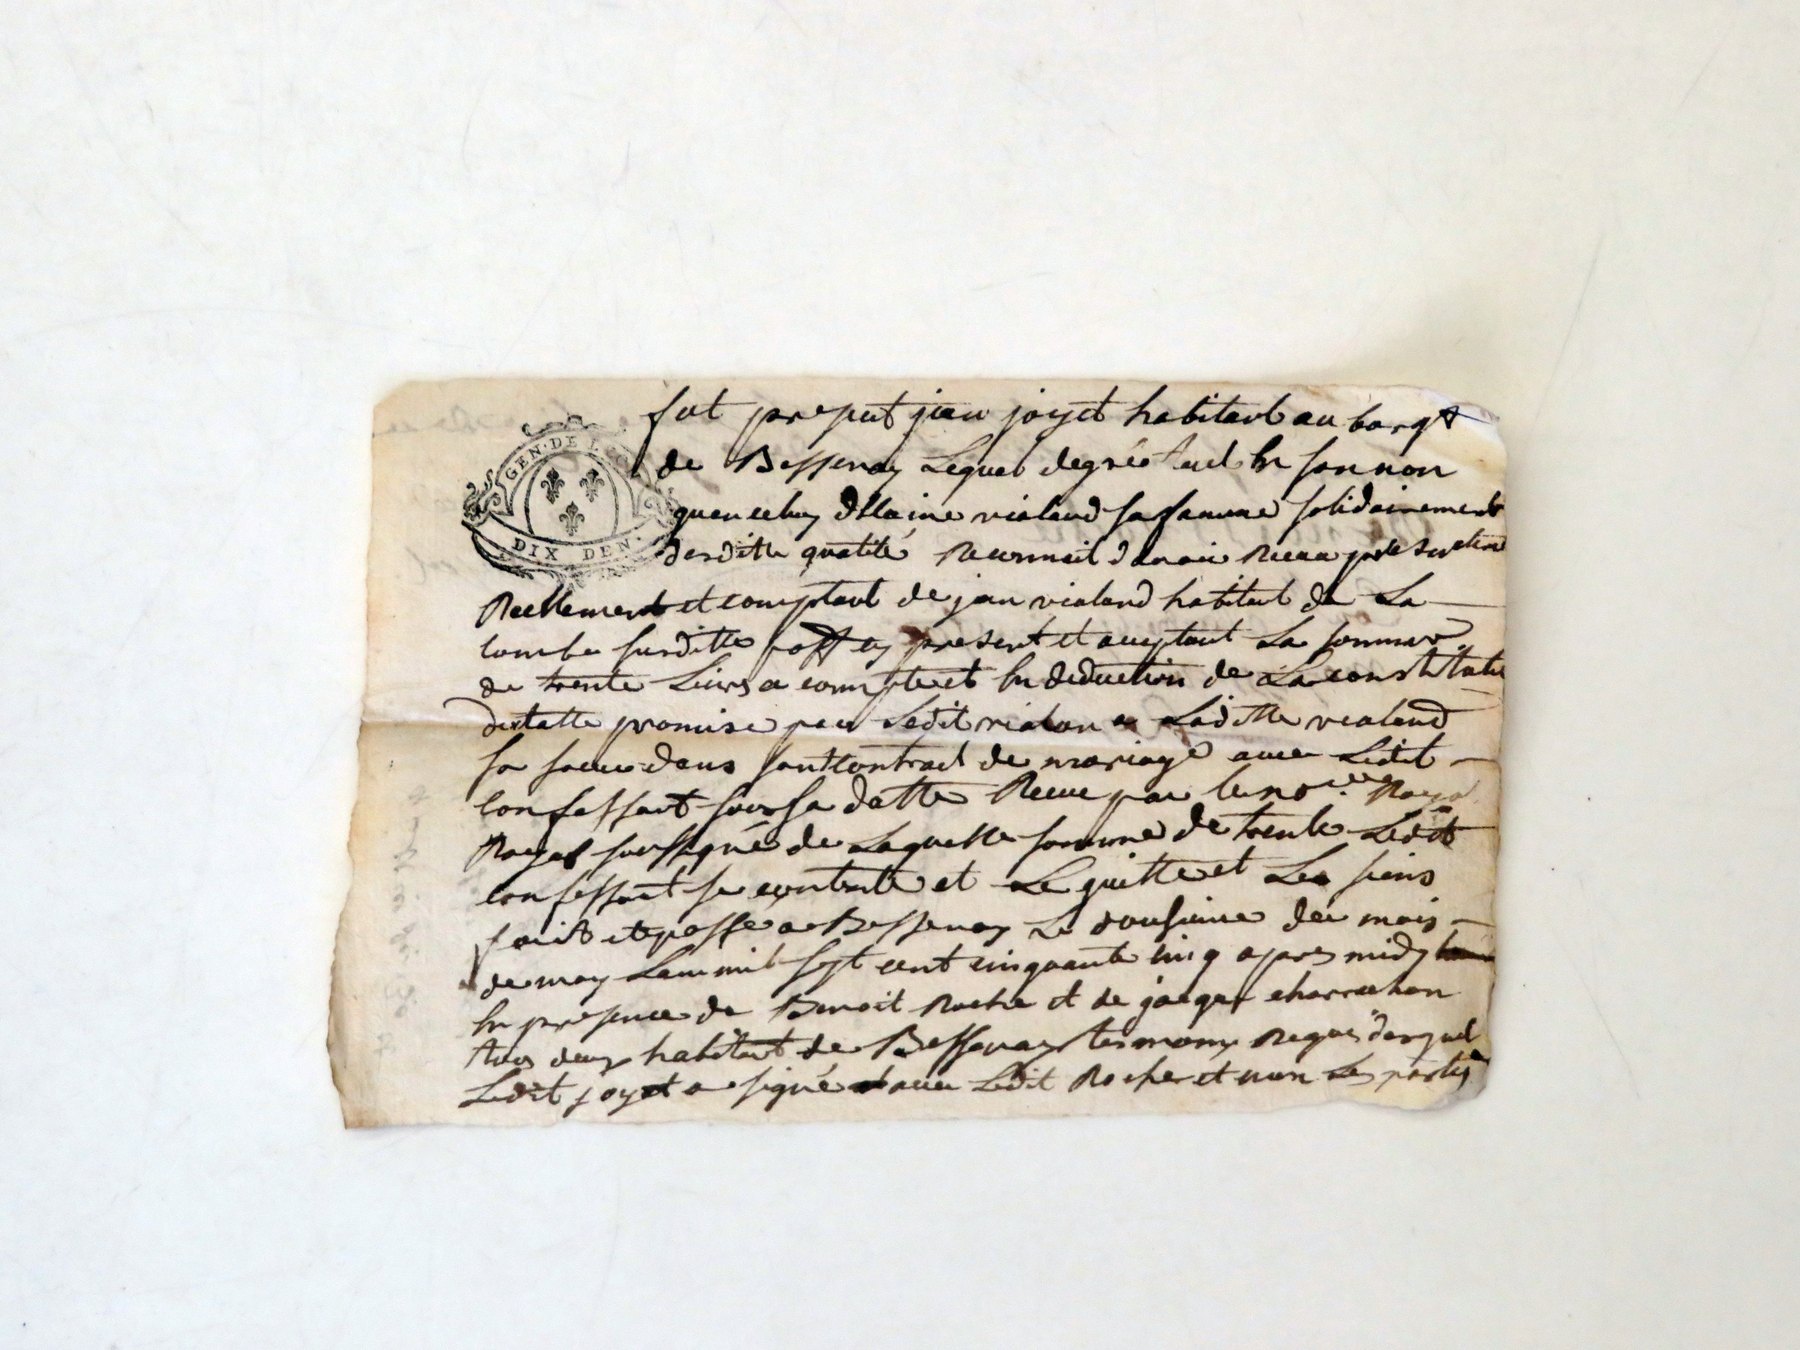 GEN. DE L
DIX DEN.
fut present jean joyet habitant au bourgt
de Bessenay Lequel degré tant En son non
quen celuy dElaine vialand sa famme solidairement
desditte qualité Reconnoit davoir Receu
Reellement et comptant de jan vialand habitant de La
combe susditte present et aceptant La somme
de trente Livres a compte et En deduction de La constitution
dottalle promise par Ledit vialan a Laditte vialand
sa soeur dans sont Contract de mariage avec Ledit
Confessant sous sa datte Receu par Le nore Royal
Royal soussigné de Laquelle somme de trente Ledit
confessant se contente et Le quitte et Les siens
fait et passé a Bessenay Le dousieme du mois
de may Lan mil sept cent cinquante cinq apres midy
En presence de Benoit Roche et de jacque charrechon
tous deux habitant de Bessenay tesmoms Requis desquel
Ledit joyet a signé avec Ledit Rocher et non Les partis